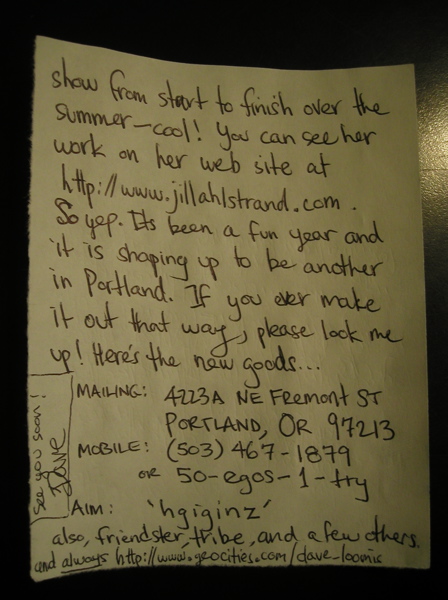 show from start to finish over the
summer—cool! You can see her
work on her web site at
http://www.jillahlstrand.com.
So yep. Its been a fun year and
it is shaping up to be another
in Portland. If you ever make
it out that way, please look me
up! Here's the new goods...
MAILING: 4223A NE Fremont ST
PORTLAND, OR 97213
MOBILE: (503) 467-1879
OR 50-egos-1-try
AIM: 'hgiginz'
also, friendster, tribe, and a few others.
and always http://www.geocities.com/dave_loomis
see you soon!
Dave